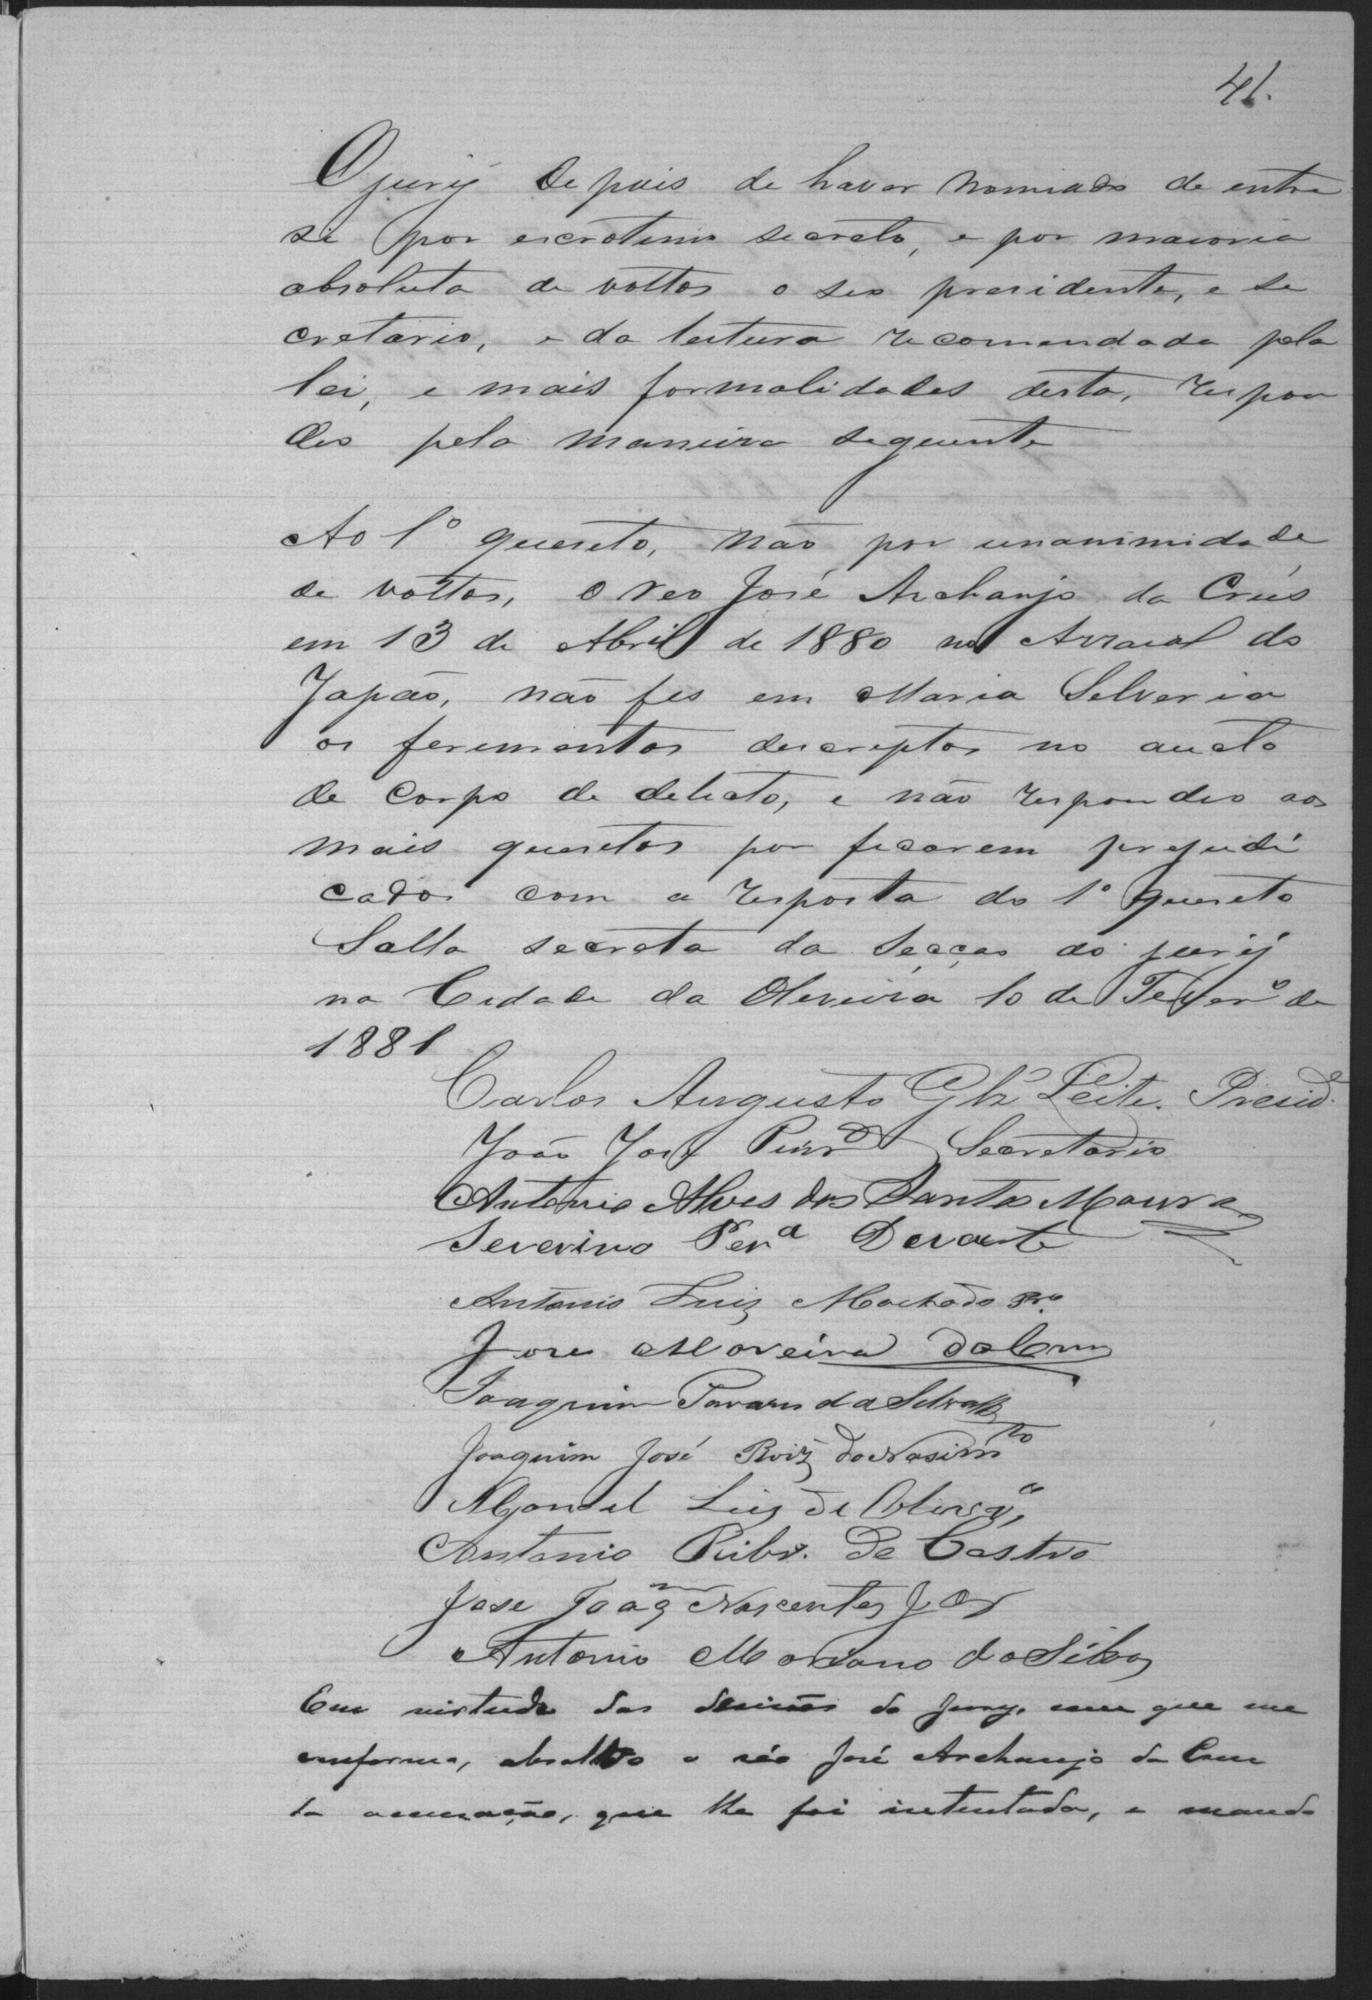 41.
O jury depois de haver nomiado de entre
si por escrotinio secreto, e por maioria
absoluta de vottos o seo presidente, e se
cretario, e da leitura recomendada pela
lei, e mais formalidades desta, respon
deo pela maneira seguinte
Ao 1º quesito, não por unanimidade
de vottos, o reo José Archanjo da Crus
em 13 de Abril de 1880 no Arraial do
Japão, não fes em Maria Selveria
os ferimentos descreptos no aucto
de Corpo de delicto, e não respondeo aos
mais quesitos por ficarem prejudi
cados com a resposta do 1º quesito
Salla secreta da Secção do jury
na Cidade da Oliveira 10 de Fever.º de
1881
Carlos Augusto Leite. Presid.e
João José Secretario
Antonio Alves dos Santos Moura
Severino Per.a Devarte
Antonio Luiz Machado
Jose Moreira da Crus
Joaquim Tavares da Silva
Joaquim José Roiz do Nasim.to
Manoel Luiz de Olivr.a
Antonio Ribr. de Castro
Jose Joaq.m Nascentes J.or
Antonio Mariano da Silva
Em virtude das decisões do Jury, com que me
conformo, absolvo o réo José Archanjo da Cruz
da accusação, que lhe foi intentada, e mando